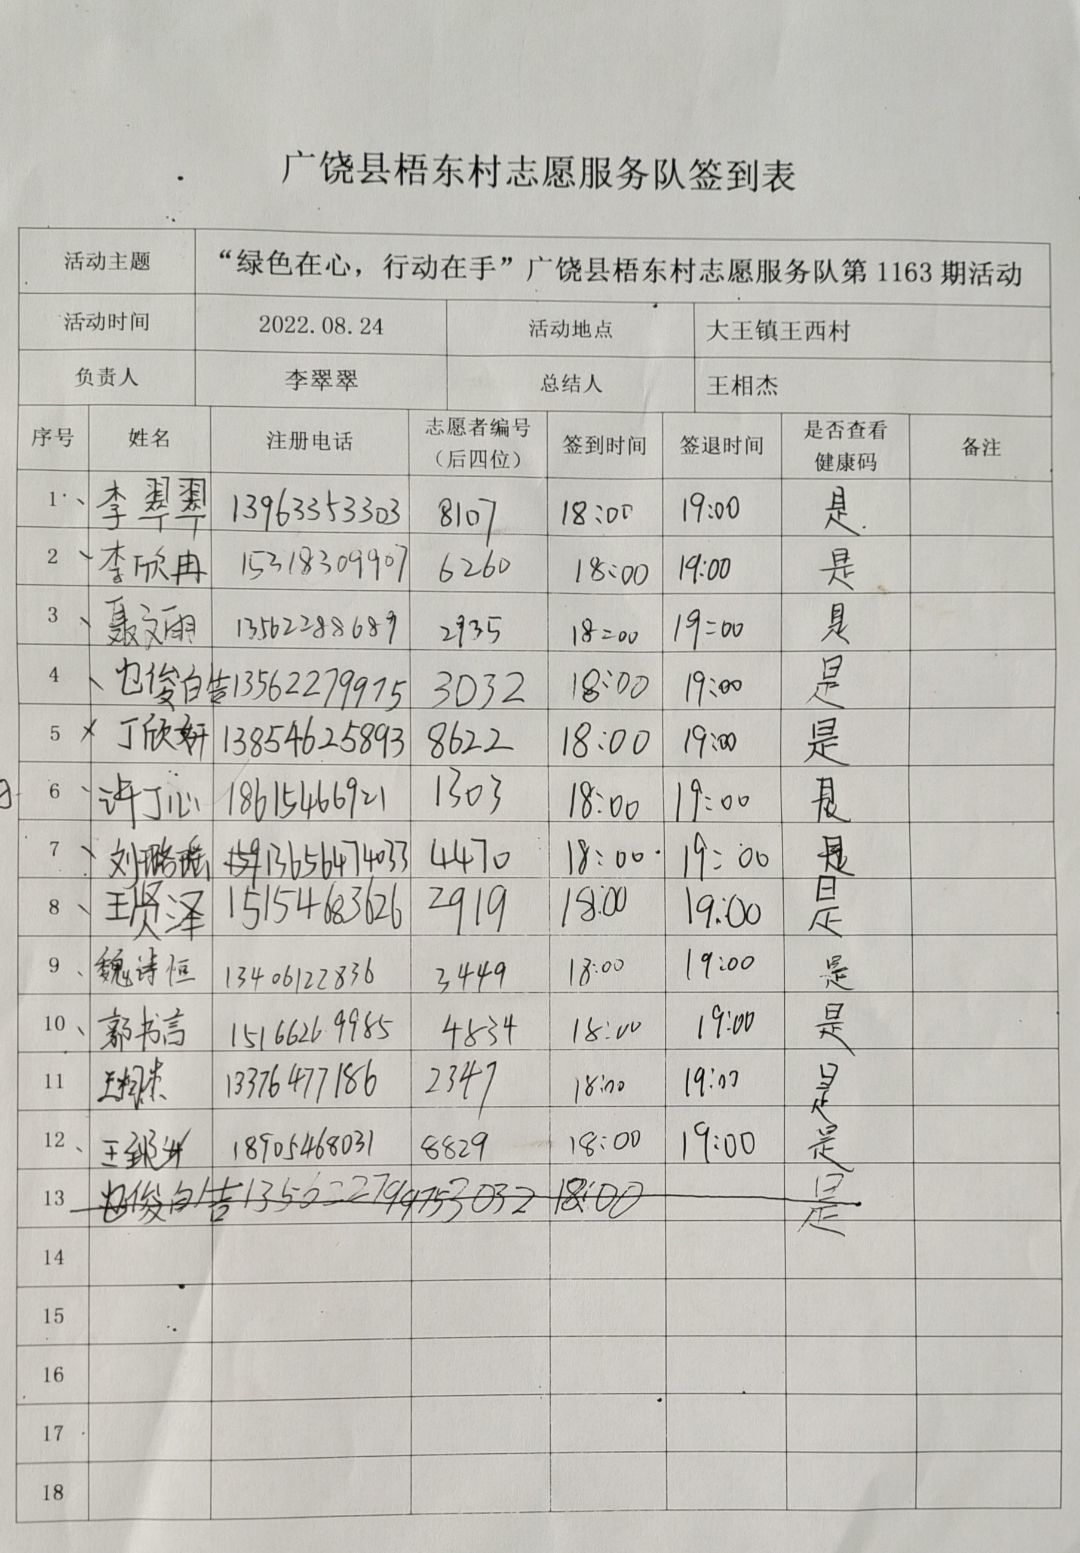 广饶县梧东村志愿服务队签到表
活动主题 “绿色在心，行动在手”广饶县梧东村志愿服务队第1163期活动
活动时间 2022.08.24 活动地点 大王镇王西村
负责人 李翠翠 总结人 王相杰
序号 姓名 注册电话 志愿者编号（后四位） 签到时间 签退时间 是否查看健康码 备注
1 李翠翠 13963353303 8107 18:00 19:00 是
2 李欣冉 15318309907 6260 18:00 19:00 是
3 聂文雨 13562288689 2935 18:00 19:00 是
4 俊皓 13562279975 3032 18:00 19:00 是
5 丁欣妍 13854625893 8622 18:00 19:00 是
6 许丁心 18615466921 1303 18:00 19:00 是
7 刘鹏瑶 13656474033 4470 18:00 19:00 是
8 王贤泽 15154683626 2919 18:00 19:00 是
9 魏诗恒 13406122836 3449 18:00 19:00 是
10 郭书言 15166269985 4834 18:00 19:00 是
11 王相杰 13376477186 2347 18:00 19:00 是
12 王 18905468031 8829 18:00 19:00 是
13 俊皓 13562279975 3032 18:00 是
14
15
16
17
18